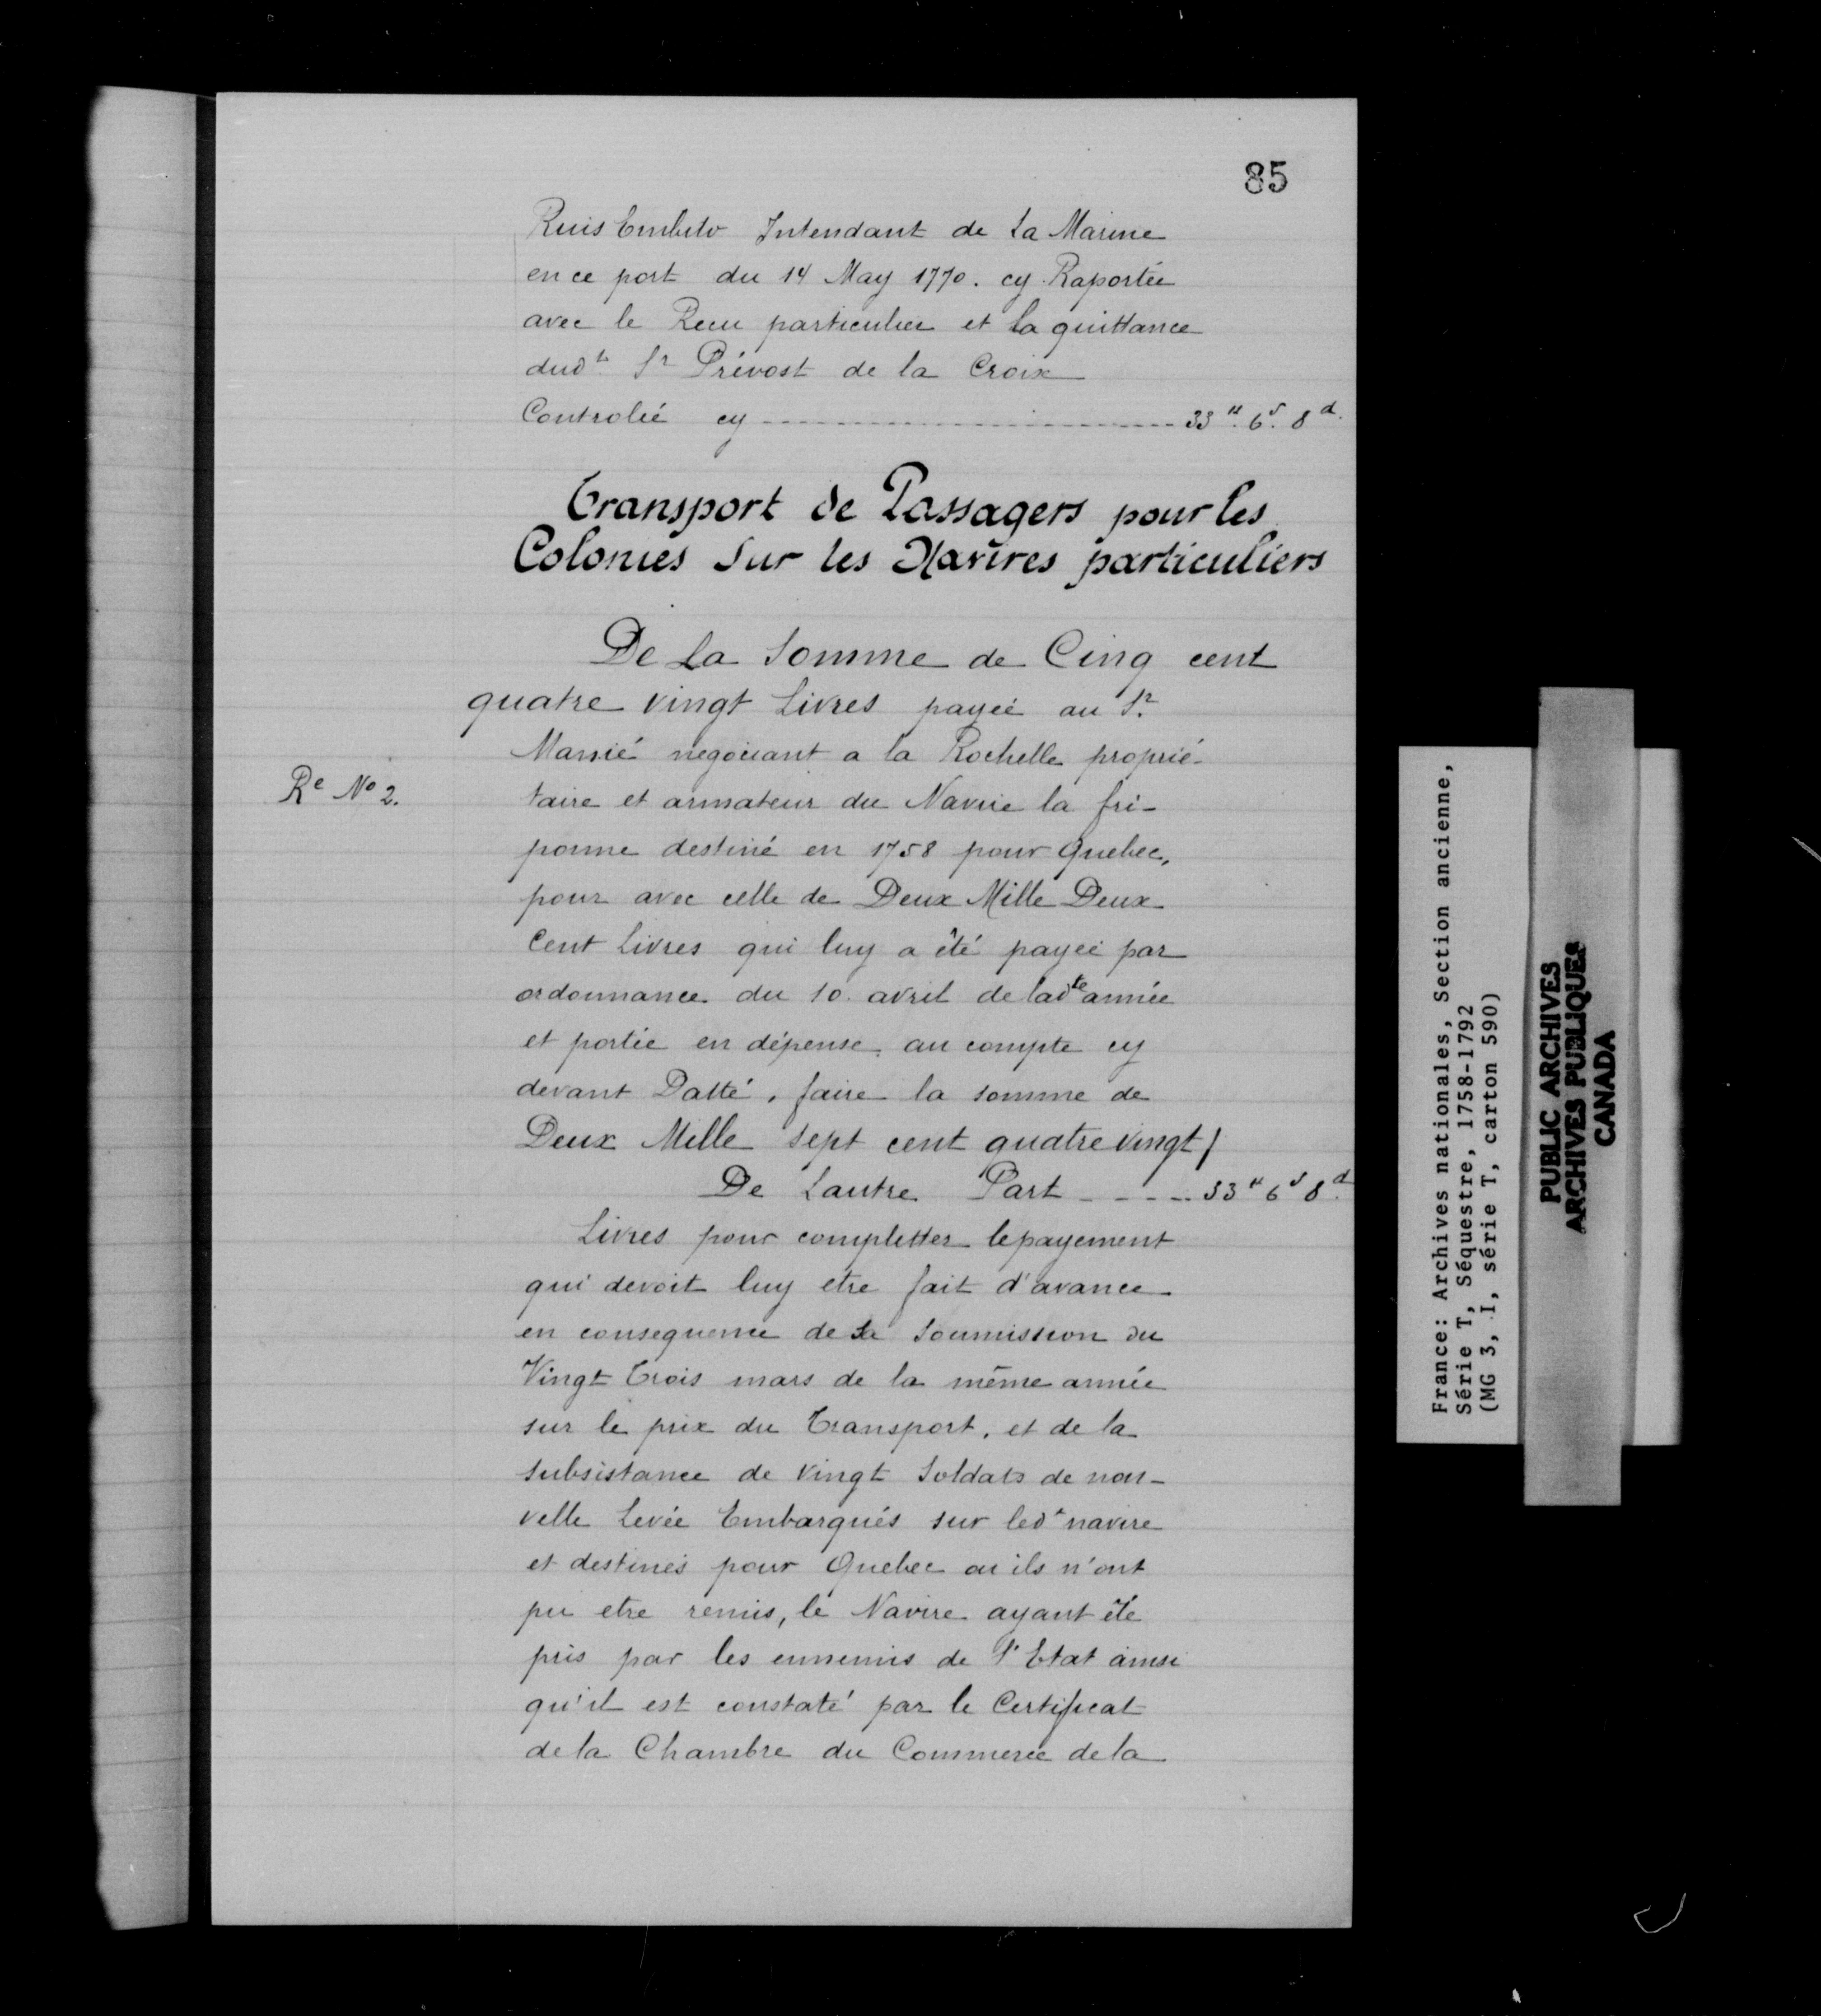 85
Ruis Embito Intendant de La Marine
en ce port du 14 May 1770. cy Raportée
avec le Recu particulier et la quittance
dudt Sr Prévost de la Croix
Controlée cy ---------- 33tt. 6s. 8d.
Transport de Passagers pour les
Colonies Sur les Navires particuliers
De La Somme de Cinq cent
quatre vingt Livres payée au Sr.
négociant a la Rochelle proprié-
Re No 2.
taire et armateur du Navire la fri-
ponne destiné en 1758 pour Quebec,
pour avec celle de Deux Mille Deux
Cent Livres qui luy a été payée par
ordonnance du 10. avril de ladte année
et portée en dépense. au compte cy
devant Datté, faire la somme de
Deux Mille Sept cent quatre vingt /
De Lautre Part ----- 33tt 6s 8d.
Livres pour completter le payement
qui devoit luy etre fait d'avance
en consequence de sa Soumission du
Vingt Trois mars de la même année
sur le prix du Transport, et de la
Subsistance de vingt Soldats de nou-
velle Levée Embarqués sur ledt navire
et destinés pour Quebec ou ils n'ont
pu etre remis, le Navire ayant été
pris par les ennemis de l'Etat ainsi
qu'il est constaté par le Certificat
de la Chambre du Commerce de la
France: Archives nationales, Section ancienne,
Série T, Séquestre, 1758-1792
(MG 3, I, série T, carton 590)
PUBLIC ARCHIVES
ARCHIVES PUBLIQUES
CANADA